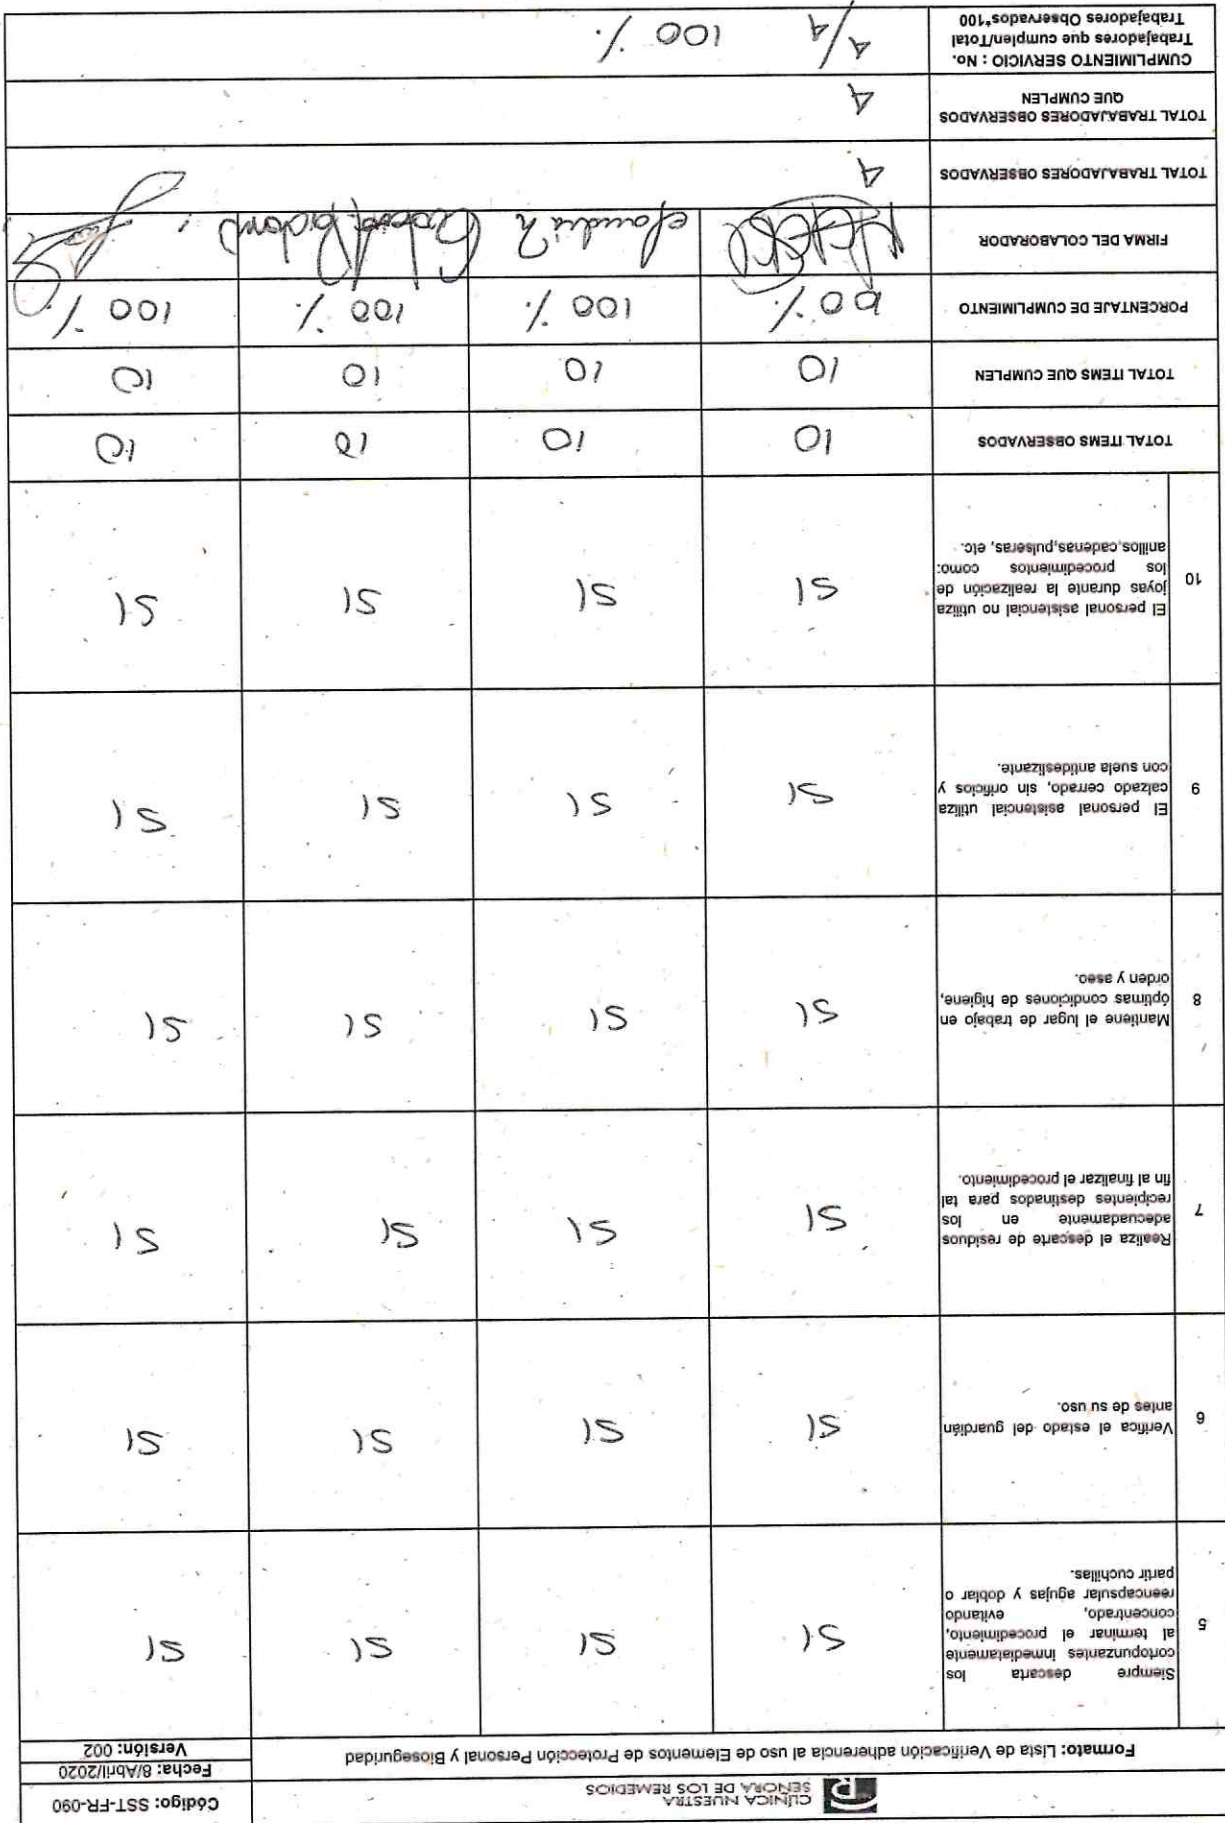 CLÍNICA NUESTRA
SEÑORA DE LOS REMEDIOS
Código: SST-FR-090
Formato: Lista de Verificación adherencia al uso de Elementos de Protección Personal y Bioseguridad
Fecha: 8/Abril/2020
Versión: 002
5
Siempre descarta los
cortopunzantes inmediatamente
al terminar el procedimiento,
concentrado, evitando
reencapsular agujas y doblar o
partir cuchillas.
SI SI SI SI
6
Verifica el estado del guardián
antes de su uso.
SI SI SI SI
7
Realiza el descarte de residuos
adecuadamente en los
recipientes destinados para tal
fin al finalizar el procedimiento.
SI SI SI SI
8
Mantiene el lugar de trabajo en
óptimas condiciones de higiene,
orden y aseo.
SI SI SI SI
9
El personal asistencial utiliza
calzado cerrado, sin orificios y
con suela antideslizante.
SI SI SI SI
10
El personal asistencial no utiliza
joyas durante la realización de
los procedimientos como:
anillos,cadenas,pulseras, etc.
SI SI SI SI
TOTAL ITEMS OBSERVADOS 10 10 10 10
TOTAL ITEMS QUE CUMPLEN 10 10 10 10
PORCENTAJE DE CUMPLIMIENTO 100 % 100 % 100 % 100 %
FIRMA DEL COLABORADOR Claudia R
TOTAL TRABAJADORES OBSERVADOS 4
TOTAL TRABAJADORES OBSERVADOS
QUE CUMPLEN
4
CUMPLIMIENTO SERVICIO : No.
Trabajadores que cumplen/Total
Trabajadores Observados*100
4/4 100 %